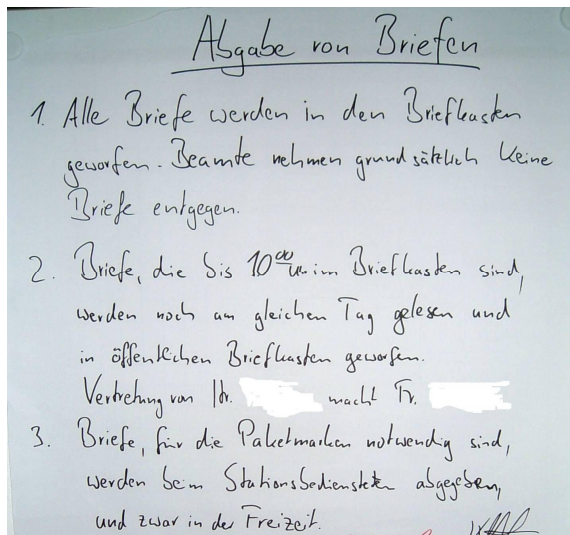 Abgabe von Briefen
1. Alle Briefe werden in den Briefkasten
geworfen. Beamte nehmen grundsätzlich keine
Briefe entgegen.
2. Briefe, die bis 10⁰⁰ Uhr im Briefkasten sind,
werden noch am gleichen Tag gelesen und
in öffentlichen Briefkasten geworfen.
Vertretung von Hr. macht Fr.
3. Briefe, für die Paketmarken notwendig sind,
werden beim Stationsbediensteten abgegeben,
und zwar in der Freizeit.